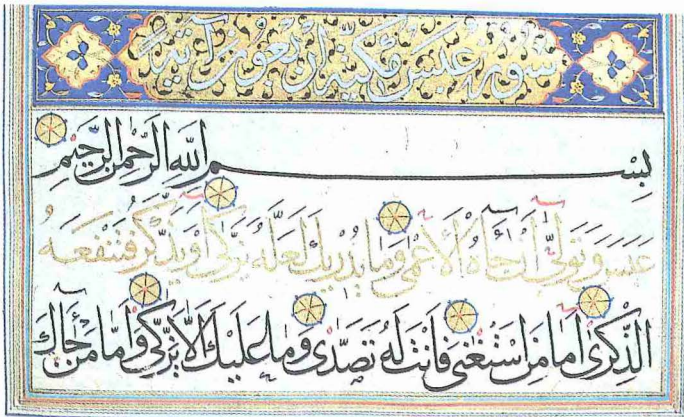 سورة عبس مكية أربعون آية
بِسْمِ اللَّهِ الرَّحْمَٰنِ الرَّحِيمِ
عَبَسَ وَتَوَلَّىٰ أَنْ جَاءَهُ الْأَعْمَىٰ وَمَا يُدْرِيكَ لَعَلَّهُ يَزَّكَّىٰ أَوْ يَذَّكَّرُ فَتَنْفَعَهُ
الذِّكْرَىٰ أَمَّا مَنِ اسْتَغْنَىٰ فَأَنْتَ لَهُ تَصَدَّىٰ وَمَا عَلَيْكَ أَلَّا يَزَّكَّىٰ وَأَمَّا مَنْ جَاءَكَ